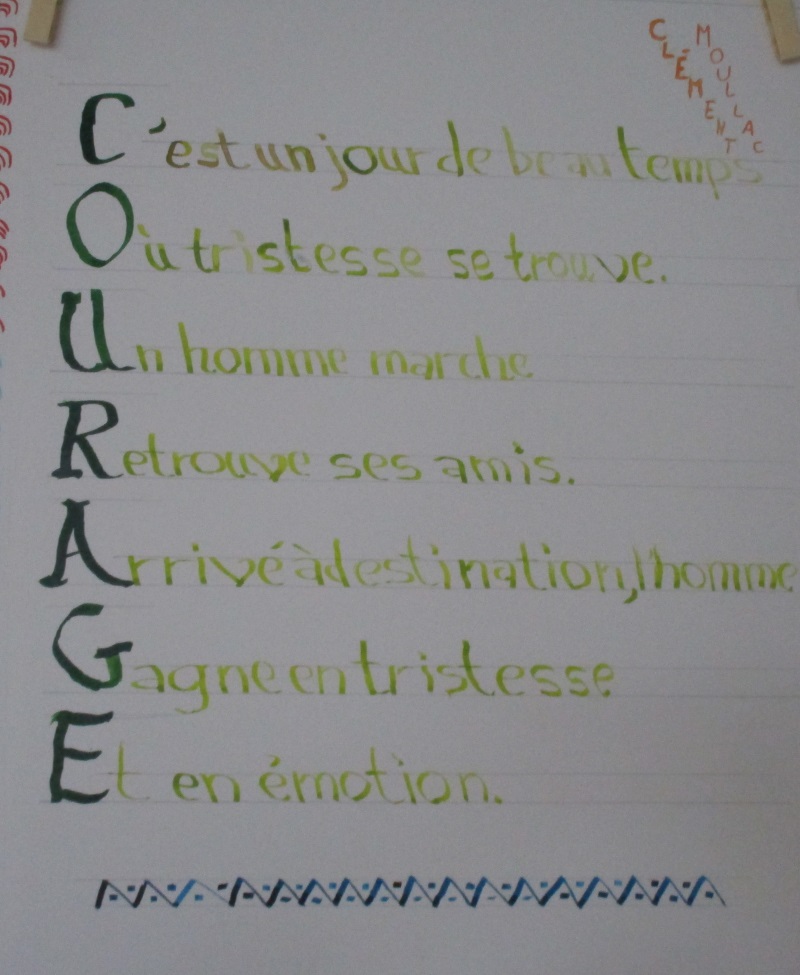 CLÉMENT
MOULLAC
C'est un jour de beau temps
Où tristesse se trouve.
Un homme marche
Retrouve ses amis.
Arrivé à destination, l'homme
Gagne en tristesse
Et en émotion.